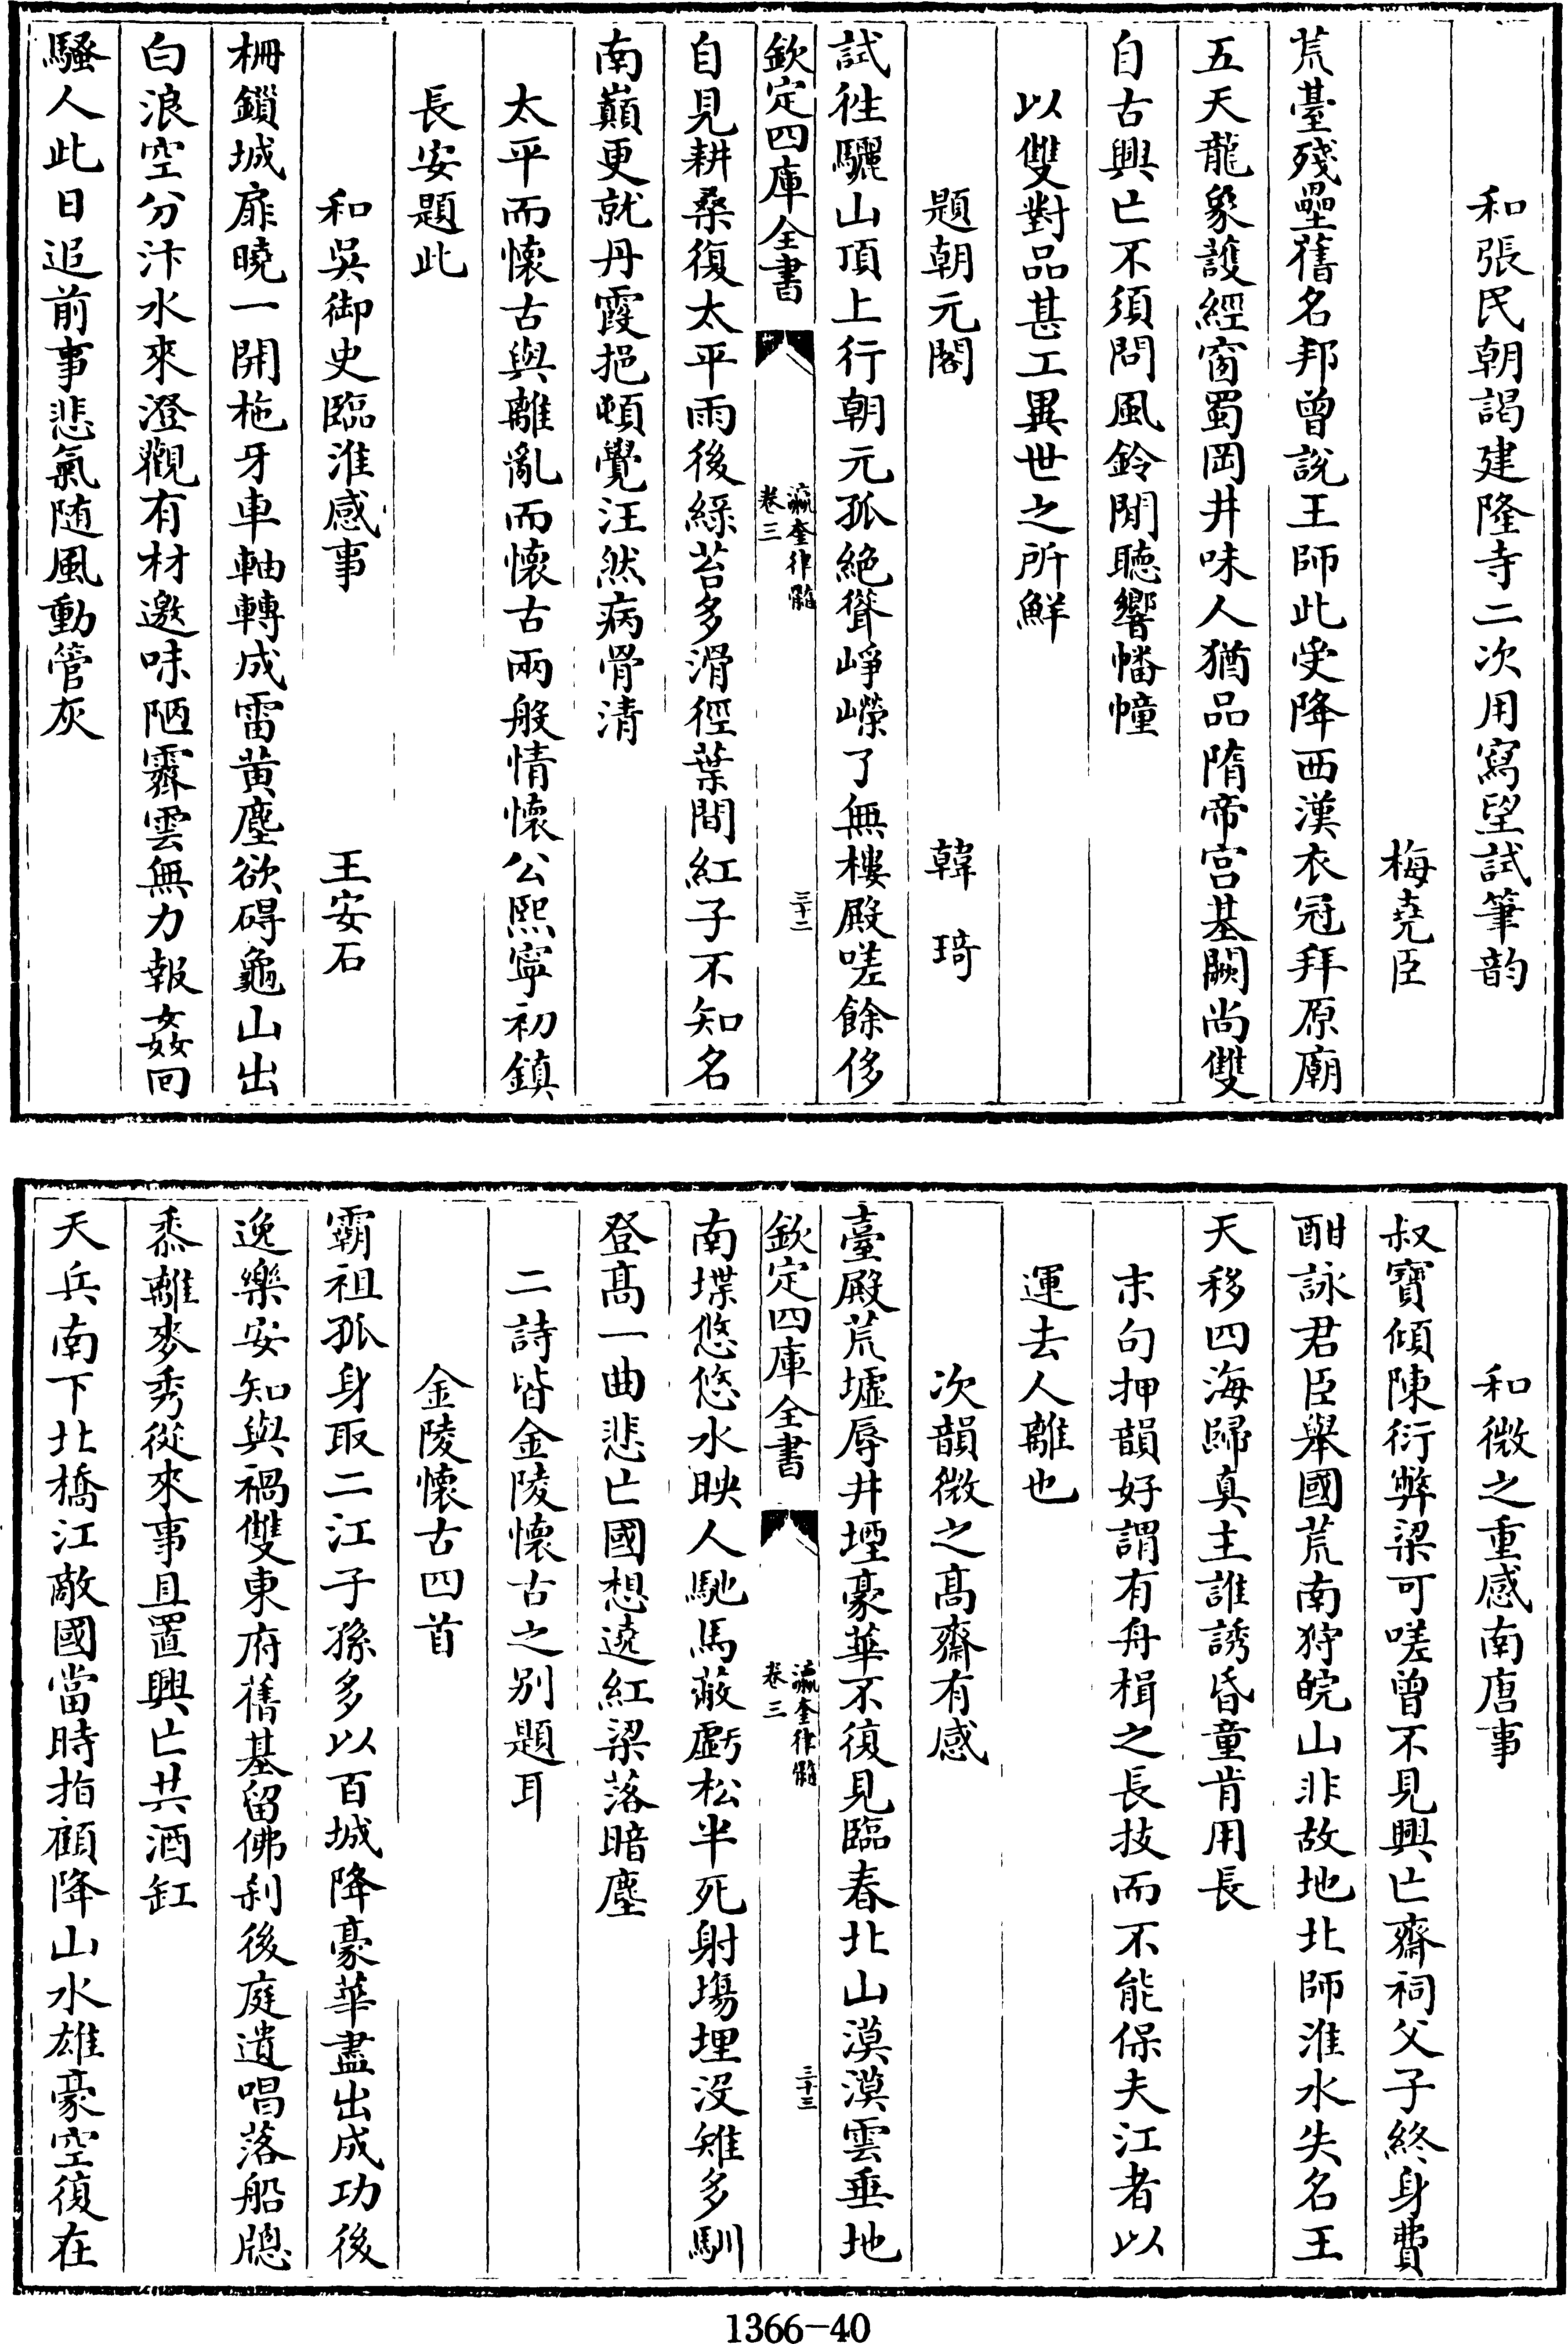 和張民朝謁建隆寺二次用寫望試筆韵
梅堯臣
荒臺殘壘舊名邦曾說王師此受降西漢衣冠拜原廟
五天龍象護經窗蜀岡井味人猶品隋帝宫基闕尚雙
自古興亡不須問風鈴閒聽響幡幢
以雙對品甚工異世之所鮮
題朝元閣
韓琦
試徃驪山頂上行朝元孤絶聳崢嶸了無樓殿嗟餘侈
欽定四庫全書
瀛奎律髓
卷三
三十二
自見耕桑復太平雨後綠苔多滑徑葉間紅子不知名
南巔更就丹霞挹頓覺汪然病骨清
太平而懷古與離亂而懷古兩般情懷公熙寧初鎮
長安題此
和吳御史臨淮感事
王安石
柵鎖城扉曉一開柂牙車軸轉成雷黄塵欲碍龜山出
白浪空分汴水來澄觀有材邀味陋霽雲無力報姦回
騷人此日追前事悲氣随風動管灰
和微之重感南唐事
叔寶傾陳衍弊梁可嗟曾不見興亡齋祠父子終身費
酣詠君臣舉國荒南狩皖山非故地北師淮水失名王
天移四海歸真主誰誘昏童肯用長
末句押韻好謂有舟楫之長技而不能保夫江者以
運去人離也
次韻微之髙齋有感
臺殿荒墟辱井堙豪華不復見臨春北山漠漠雲垂地
欽定四庫全書
瀛奎律髓
卷三
三十三
南堞悠悠水映人馳馬蔽虧松半死射塲埋没雉多馴
登髙一曲悲亡國想遶紅梁落暗塵
二詩皆金陵懷古之别題耳
金陵懷古四首
霸祖孤身取二江子孫多以百城降豪華盡出成功後
逸樂安知與禍雙東府舊基留佛刹後庭遺唱落船牎
黍離麥秀從來事且置興亡共酒缸
天兵南下北橋江敵國當時指顧降山水雄豪空復在
1366-40